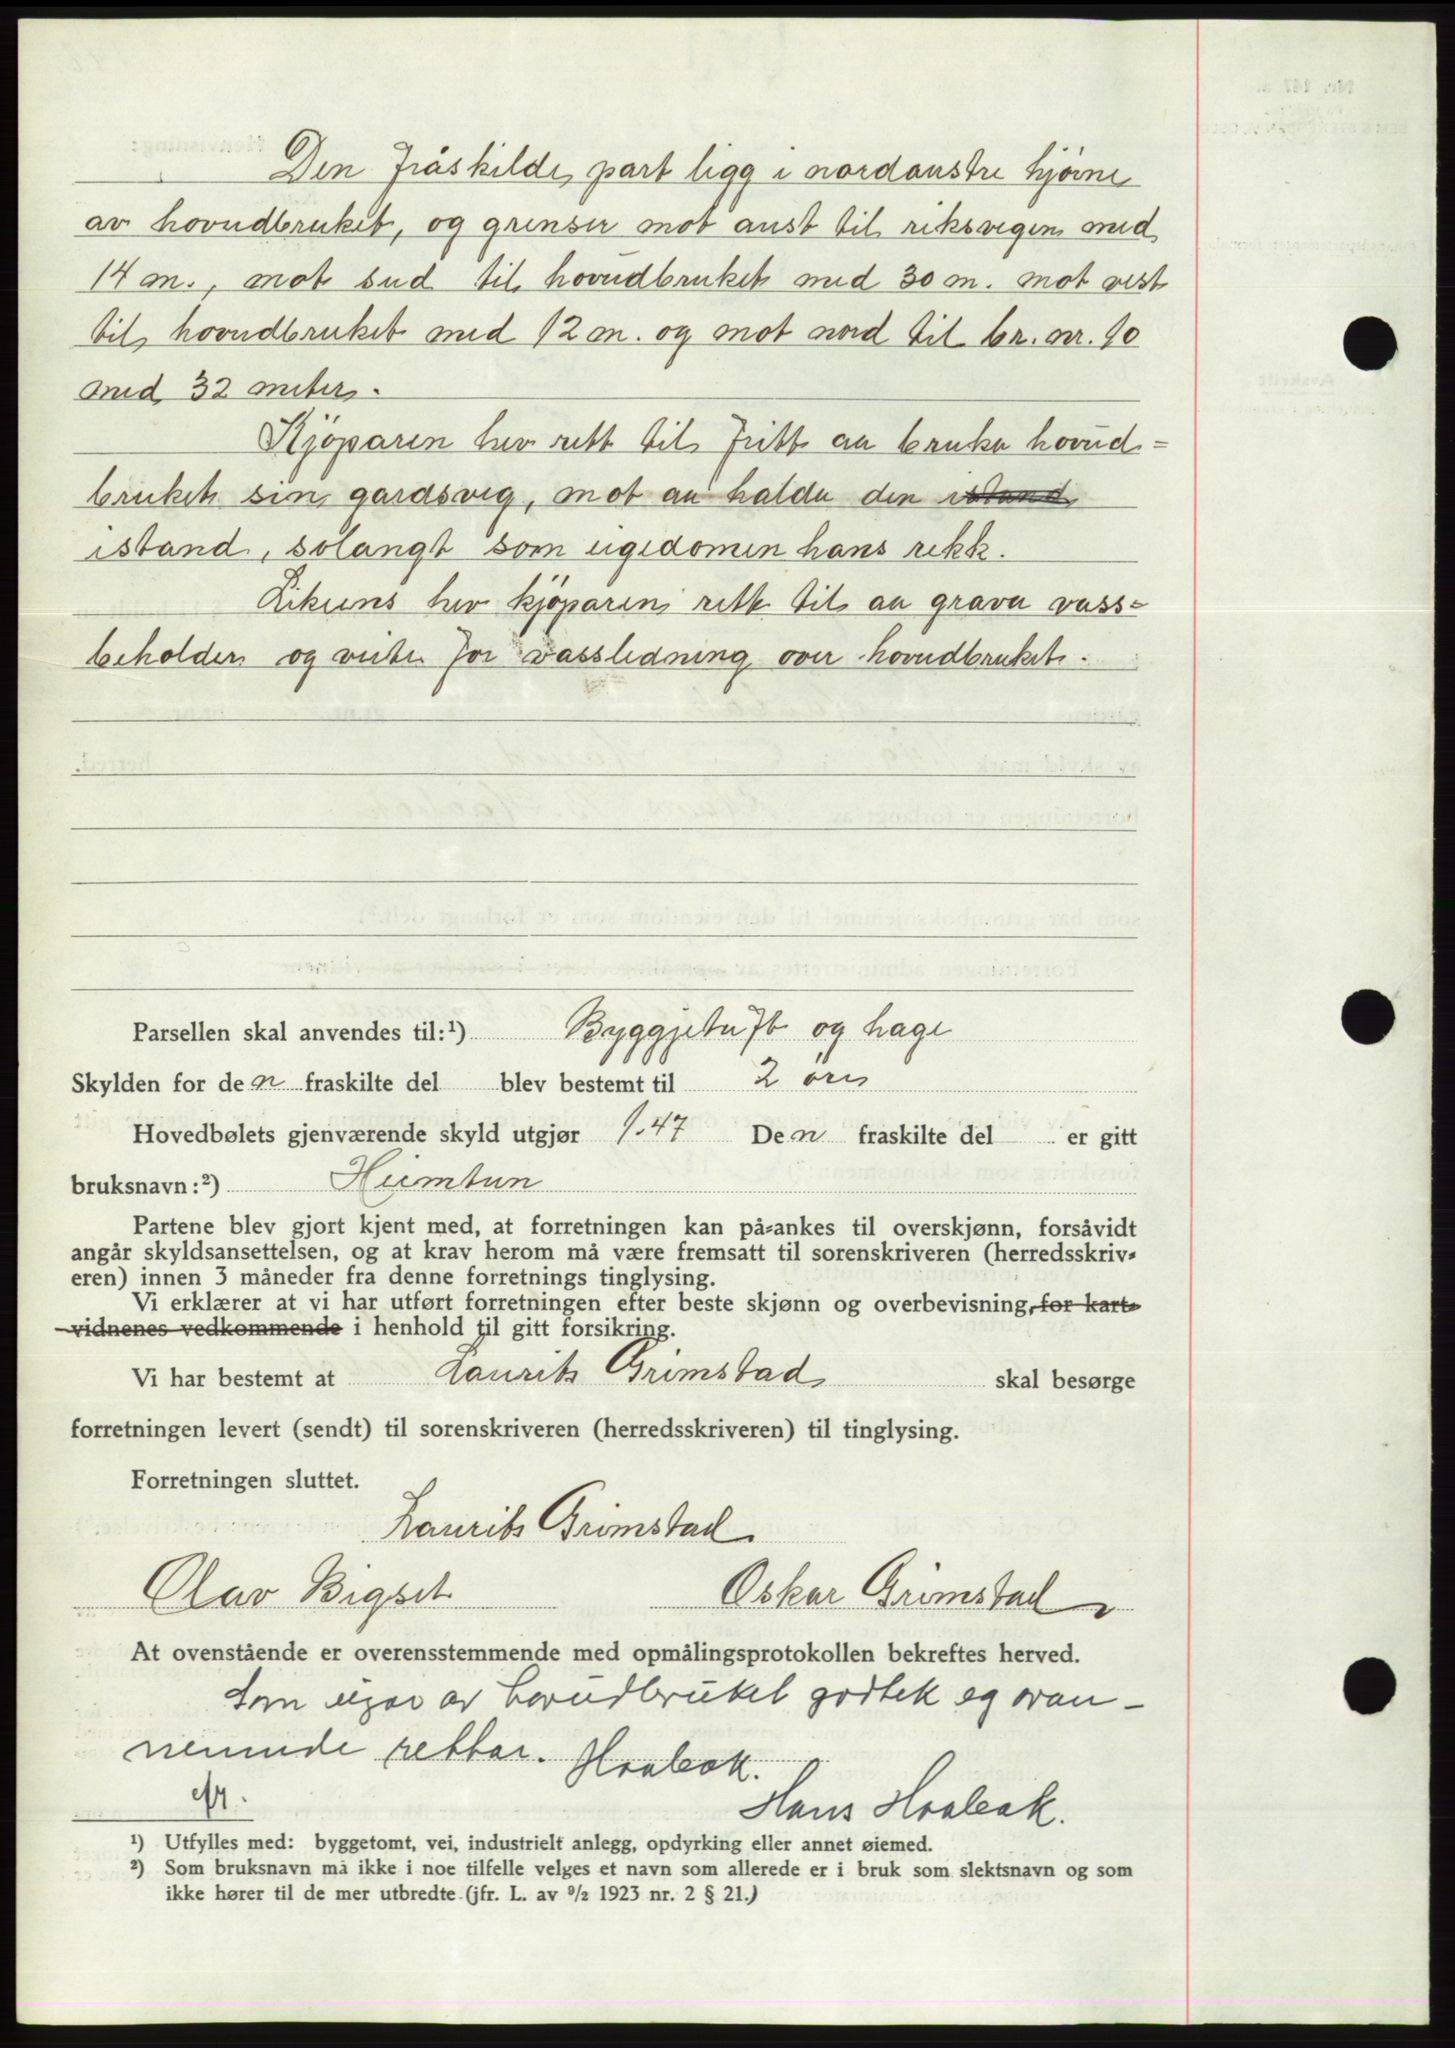 Den fråskilde part ligg i nordaustre hjørne
av hovudbruket, og grenser mot aust til riksvegen med
14 m., mot sud til hovudbruket med 30 m. mot vest
til hovudbruket med 12 m. og mot nord til br. nr. 90
med 32 meter.
Kjöparen hev rett til fritt aa bruka hovud=
bruket sin gardsveg, mot aa halda den istand
istand, solangt som eigedomen hans rekk.
Likeens hev kjöparen rett til aa grava vass=
beholder og veite for vassledning over hovudbruket.
Parsellen skal anvendes til:¹) Byggjetuft og hage
Skylden for den fraskilte del blev bestemt til 2 öre
Hovedbølets gjenværende skyld utgjør 1.47 Den fraskilte del er gitt
bruksnavn:²) Heimtun
Partene blev gjort kjent med, at forretningen kan på-ankes til overskjønn, forsåvidt
angår skyldsansettelsen, og at krav herom må være fremsatt til sorenskriveren (herredsskriv-
eren) innen 3 måneder fra denne forretnings tinglysing.
Vi erklærer at vi har utført forretningen efter beste skjønn og overbevisning, for kart-
vidnenes vedkommende i henhold til gitt forsikring.
Vi har bestemt at Laurits Grimstad skal besørge
forretningen levert (sendt) til sorenskriveren (herredsskriveren) til tinglysing.
Forretningen sluttet.
Laurits Grimstad
Olav Bigset Oskar Grimstad
At ovenstående er overensstemmende med opmålingsprotokollen bekreftes herved.
Som eigar av hovudbruket godtek eg ovan-
nemnde rettar. Haabak.
Hans Haabak.
¹) Utfylles med: byggetomt, vei, industrielt anlegg, opdyrking eller annet øiemed.
²) Som bruksnavn må ikke i noe tilfelle velges et navn som allerede er i bruk som slektsnavn og som
ikke hører til de mer utbredte (jfr. L. av ⁹/₂ 1923 nr. 2 § 21.)